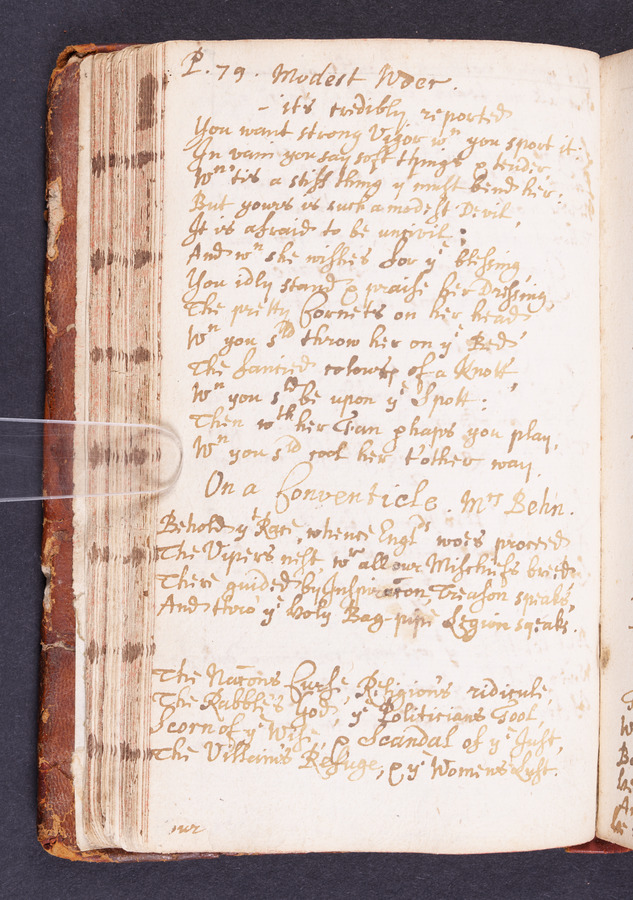 P. 79. Modest Woer.
- it's credibly reported
You want strong Vigor wⁿ you sport it:
In vain you say soft things & tender
Wⁿ 'tis a stiff thing yᵗ must bend her;
But yours is such a modest Devil,
It is afraid to be uncivil;
And wⁿ she wishes for yᵉ blessing,
You idly stand & praise her Dressing,
The pretty Cornets on her head
Wⁿ you sᵈ throw her on yᵉ Bed
The fancied colours of a Knott,
Wⁿ you sᵈ be upon yᵉ Spott:
Then wᵗʰ her Fan phaps you play,
Wⁿ you sᵈ cool her t'other way.
On a Conventicle. Mʳˢ Behn.
Behold yᵉ Race, whence Englᵈˢ woes proceed
The Vipers nest, wʳ all our Mischiefs breed
There guided by Inspiracon, Treason speaks,
And thro yᵉ Holy Bag-pipe Legion sqeaks.
The Nacons Curse, Religion's ridicule,
The Rabble's God, yᵉ Politicians Tool,
Scorn of yᵉ Wise, & Scandal of yᵉ Just,
The Villain's Refuge, & yᵉ Womens Lust.